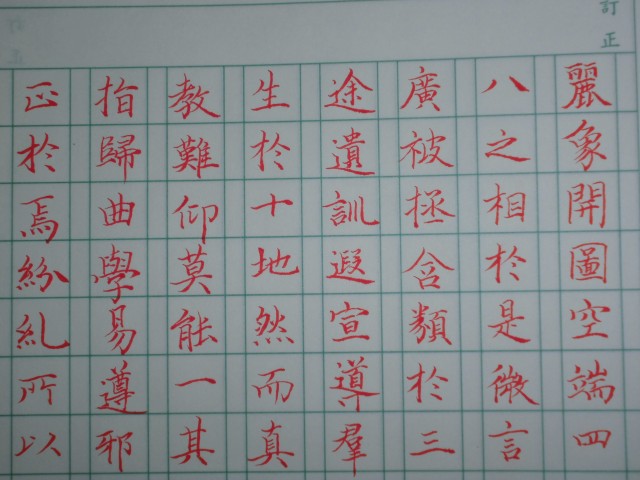 訂正
麗象開圖空端四
八之相於是微言
廣被拯含類於三
途遺訓遐宣導羣
生於十地然而真
教難仰莫能一其
指歸曲學易遵邪
正於焉紛糺所以